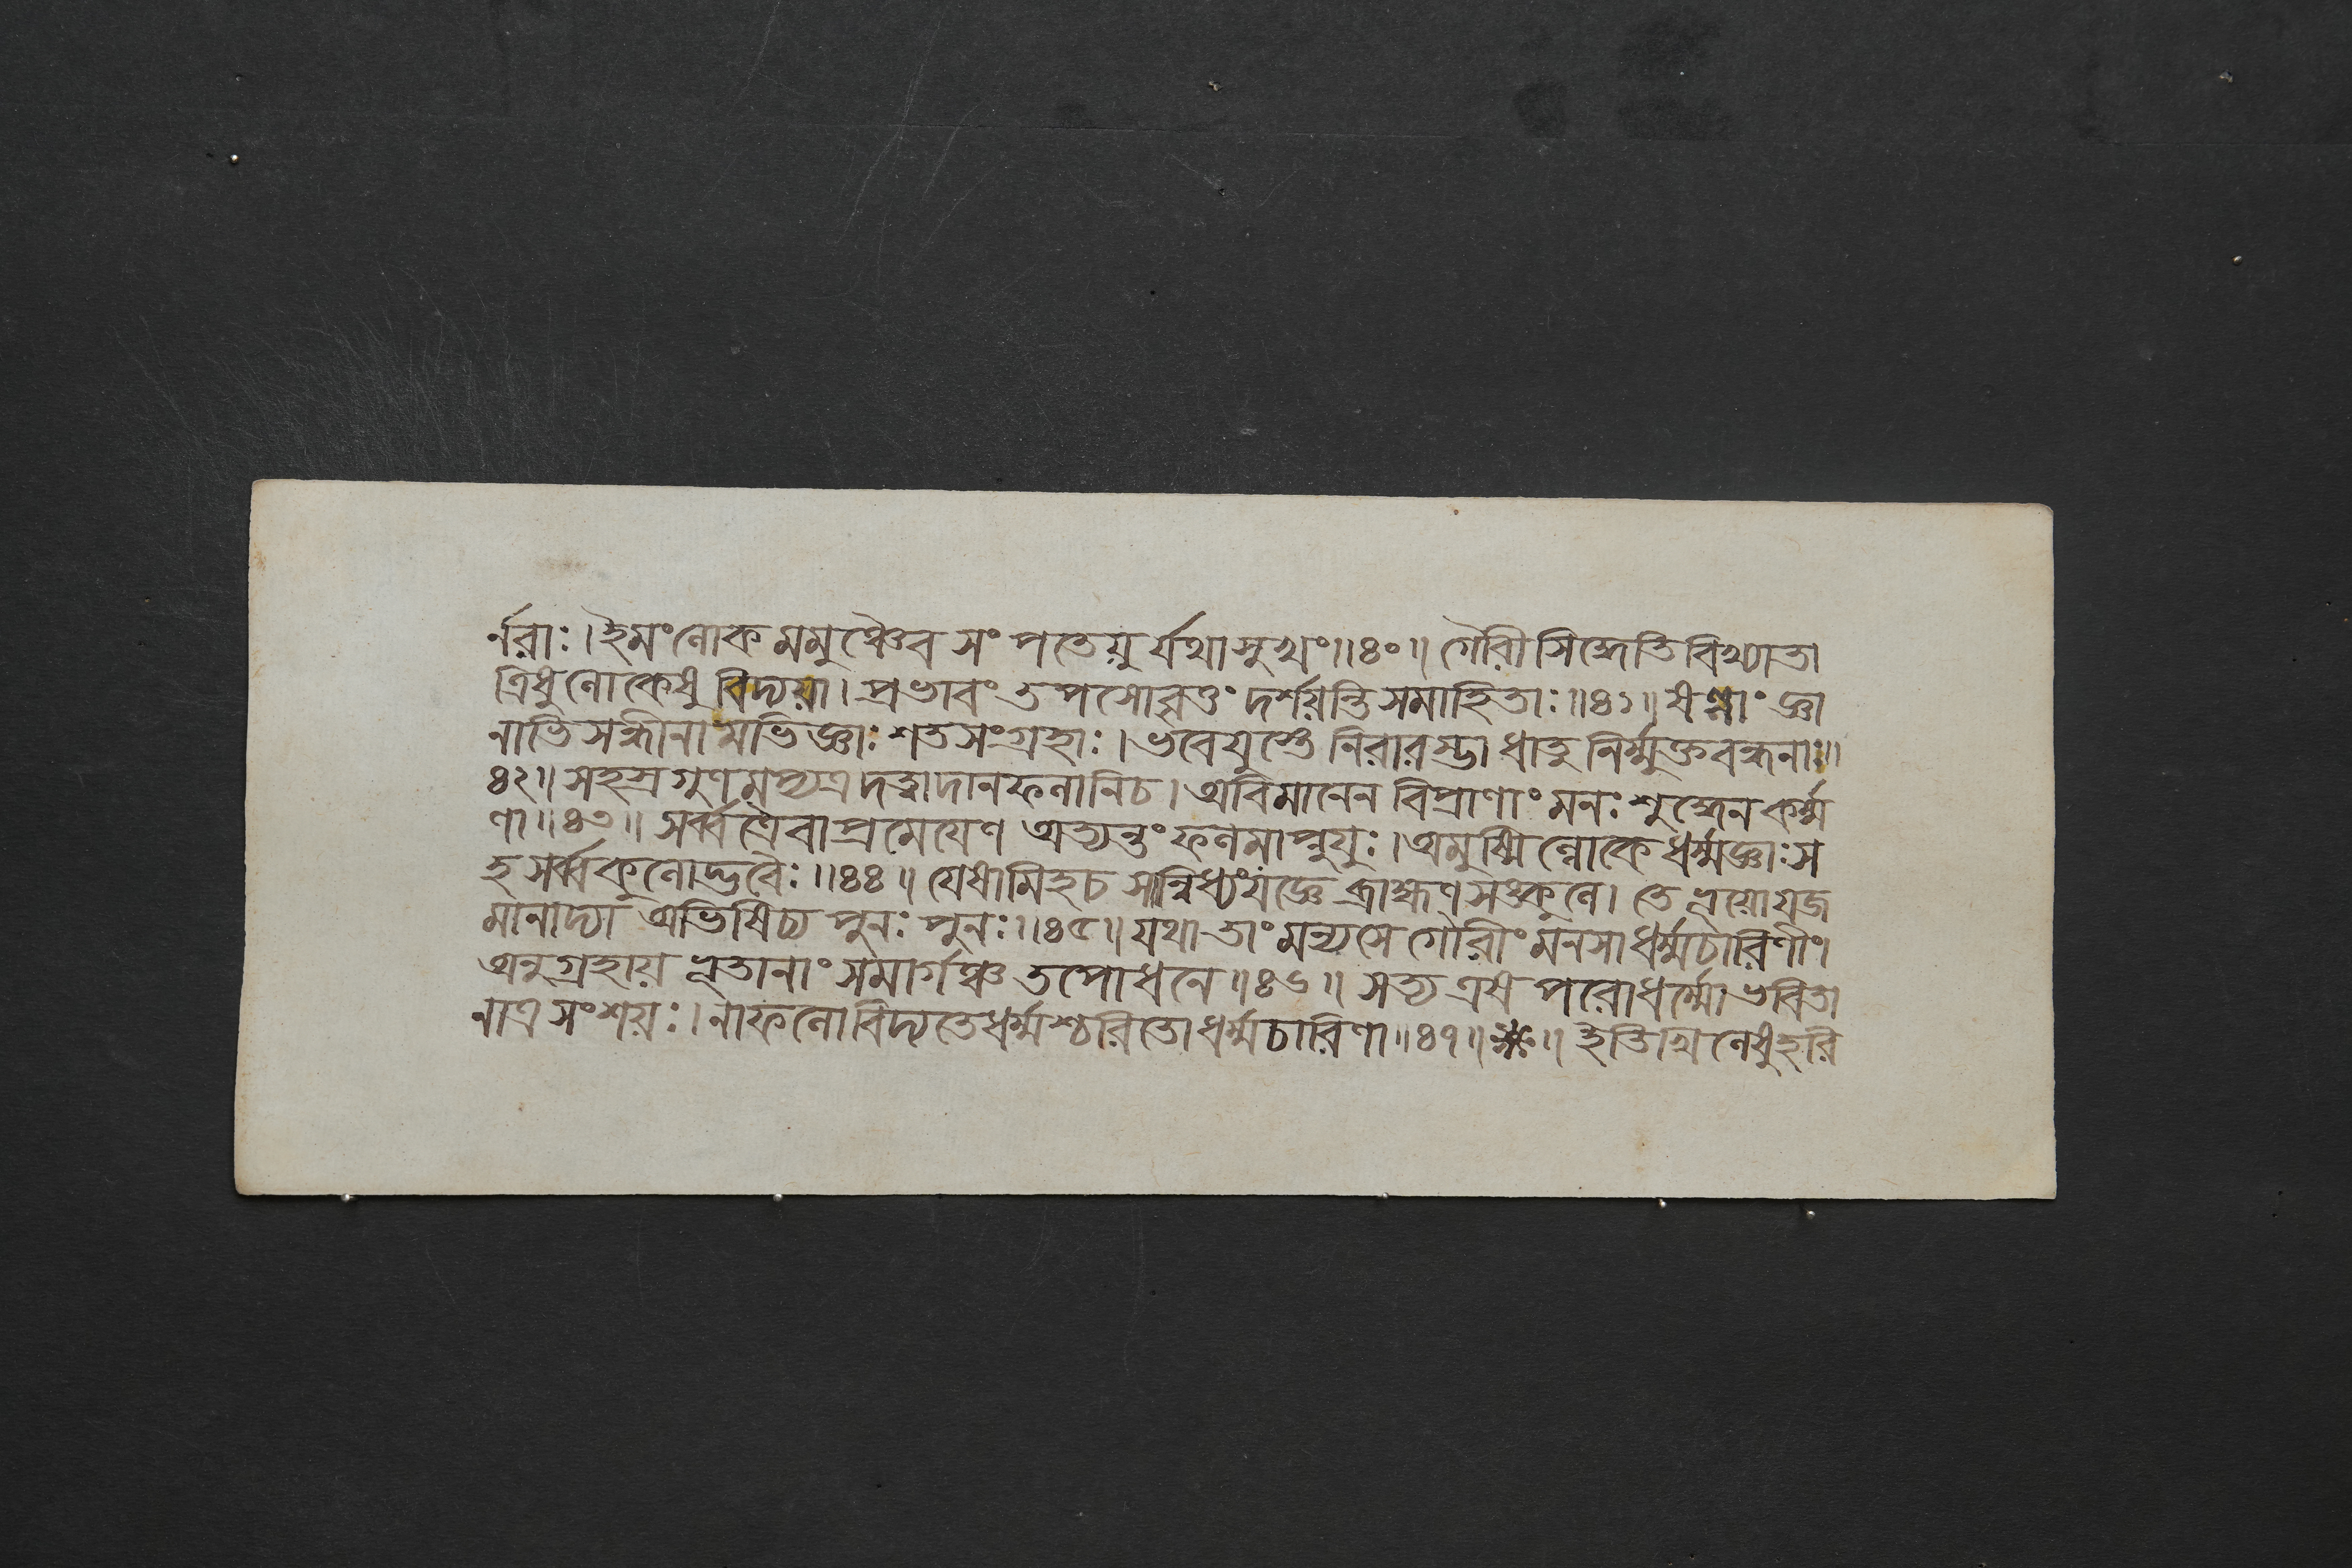 র্নরাঃ। ইমংলোক মমুঞ্চৈব সং পতেয়ু র্যথাসুখং॥৪০॥ গৌরী সিদ্ধেতি বিখ্যাতা
ত্রিষু লোকেষু বিদ্যয়া। প্রভাবং তপসোব্রতং দর্শয়ন্তি সমাহিতাঃ॥৪১॥ ষণ্ণাং জ্ঞা
নাভিসন্ধীনা মভিজ্ঞাঃ শতসংগ্রহাঃ। ভবেয়ুস্তে নিরারম্ভা ধাতু নির্ম্মুক্তবন্ধনাঃ॥
৪২॥ সহস্রগুণমপ্যত্র দত্ত্বাদানফলানিচ। অবিমানেন বিপ্রাণাং মনঃ শুদ্ধেন কর্ম্ম
ণা॥৪৩॥ সর্ব্বত্রৈবাপ্রমেয়েণ অত্যন্তং ফলমাপ্নুয়ুঃ। অমুষ্মিল্লোকে ধর্ম্মজ্ঞাঃস
হ সর্ব্বকুলোদ্ভবৈঃ॥৪৪॥ যেষামিহচ সান্নিধ্যং যজ্ঞে ব্রাহ্মণসঙ্কুলে। তে ভূয়োযজ
মানাদ্যা অভিষিচ্য পুনঃ পুনঃ॥৪৫॥ যথা তাং মন্যসে গৌরীং মনসা ধর্ম্মচারিণীং।
অনুগ্রহায় ভূতানাং সমার্গঞ্চ তপোধনে॥৪৬॥ সত্য এষ পরোধর্ম্মো ভবিতা
নাত্র সংশয়ঃ। নাফলোবিদ্যতেধর্ম্মশ্চরিতোধর্ম্মচারিণা॥৪৭॥ ॥ ইতিখিলেষুহরি